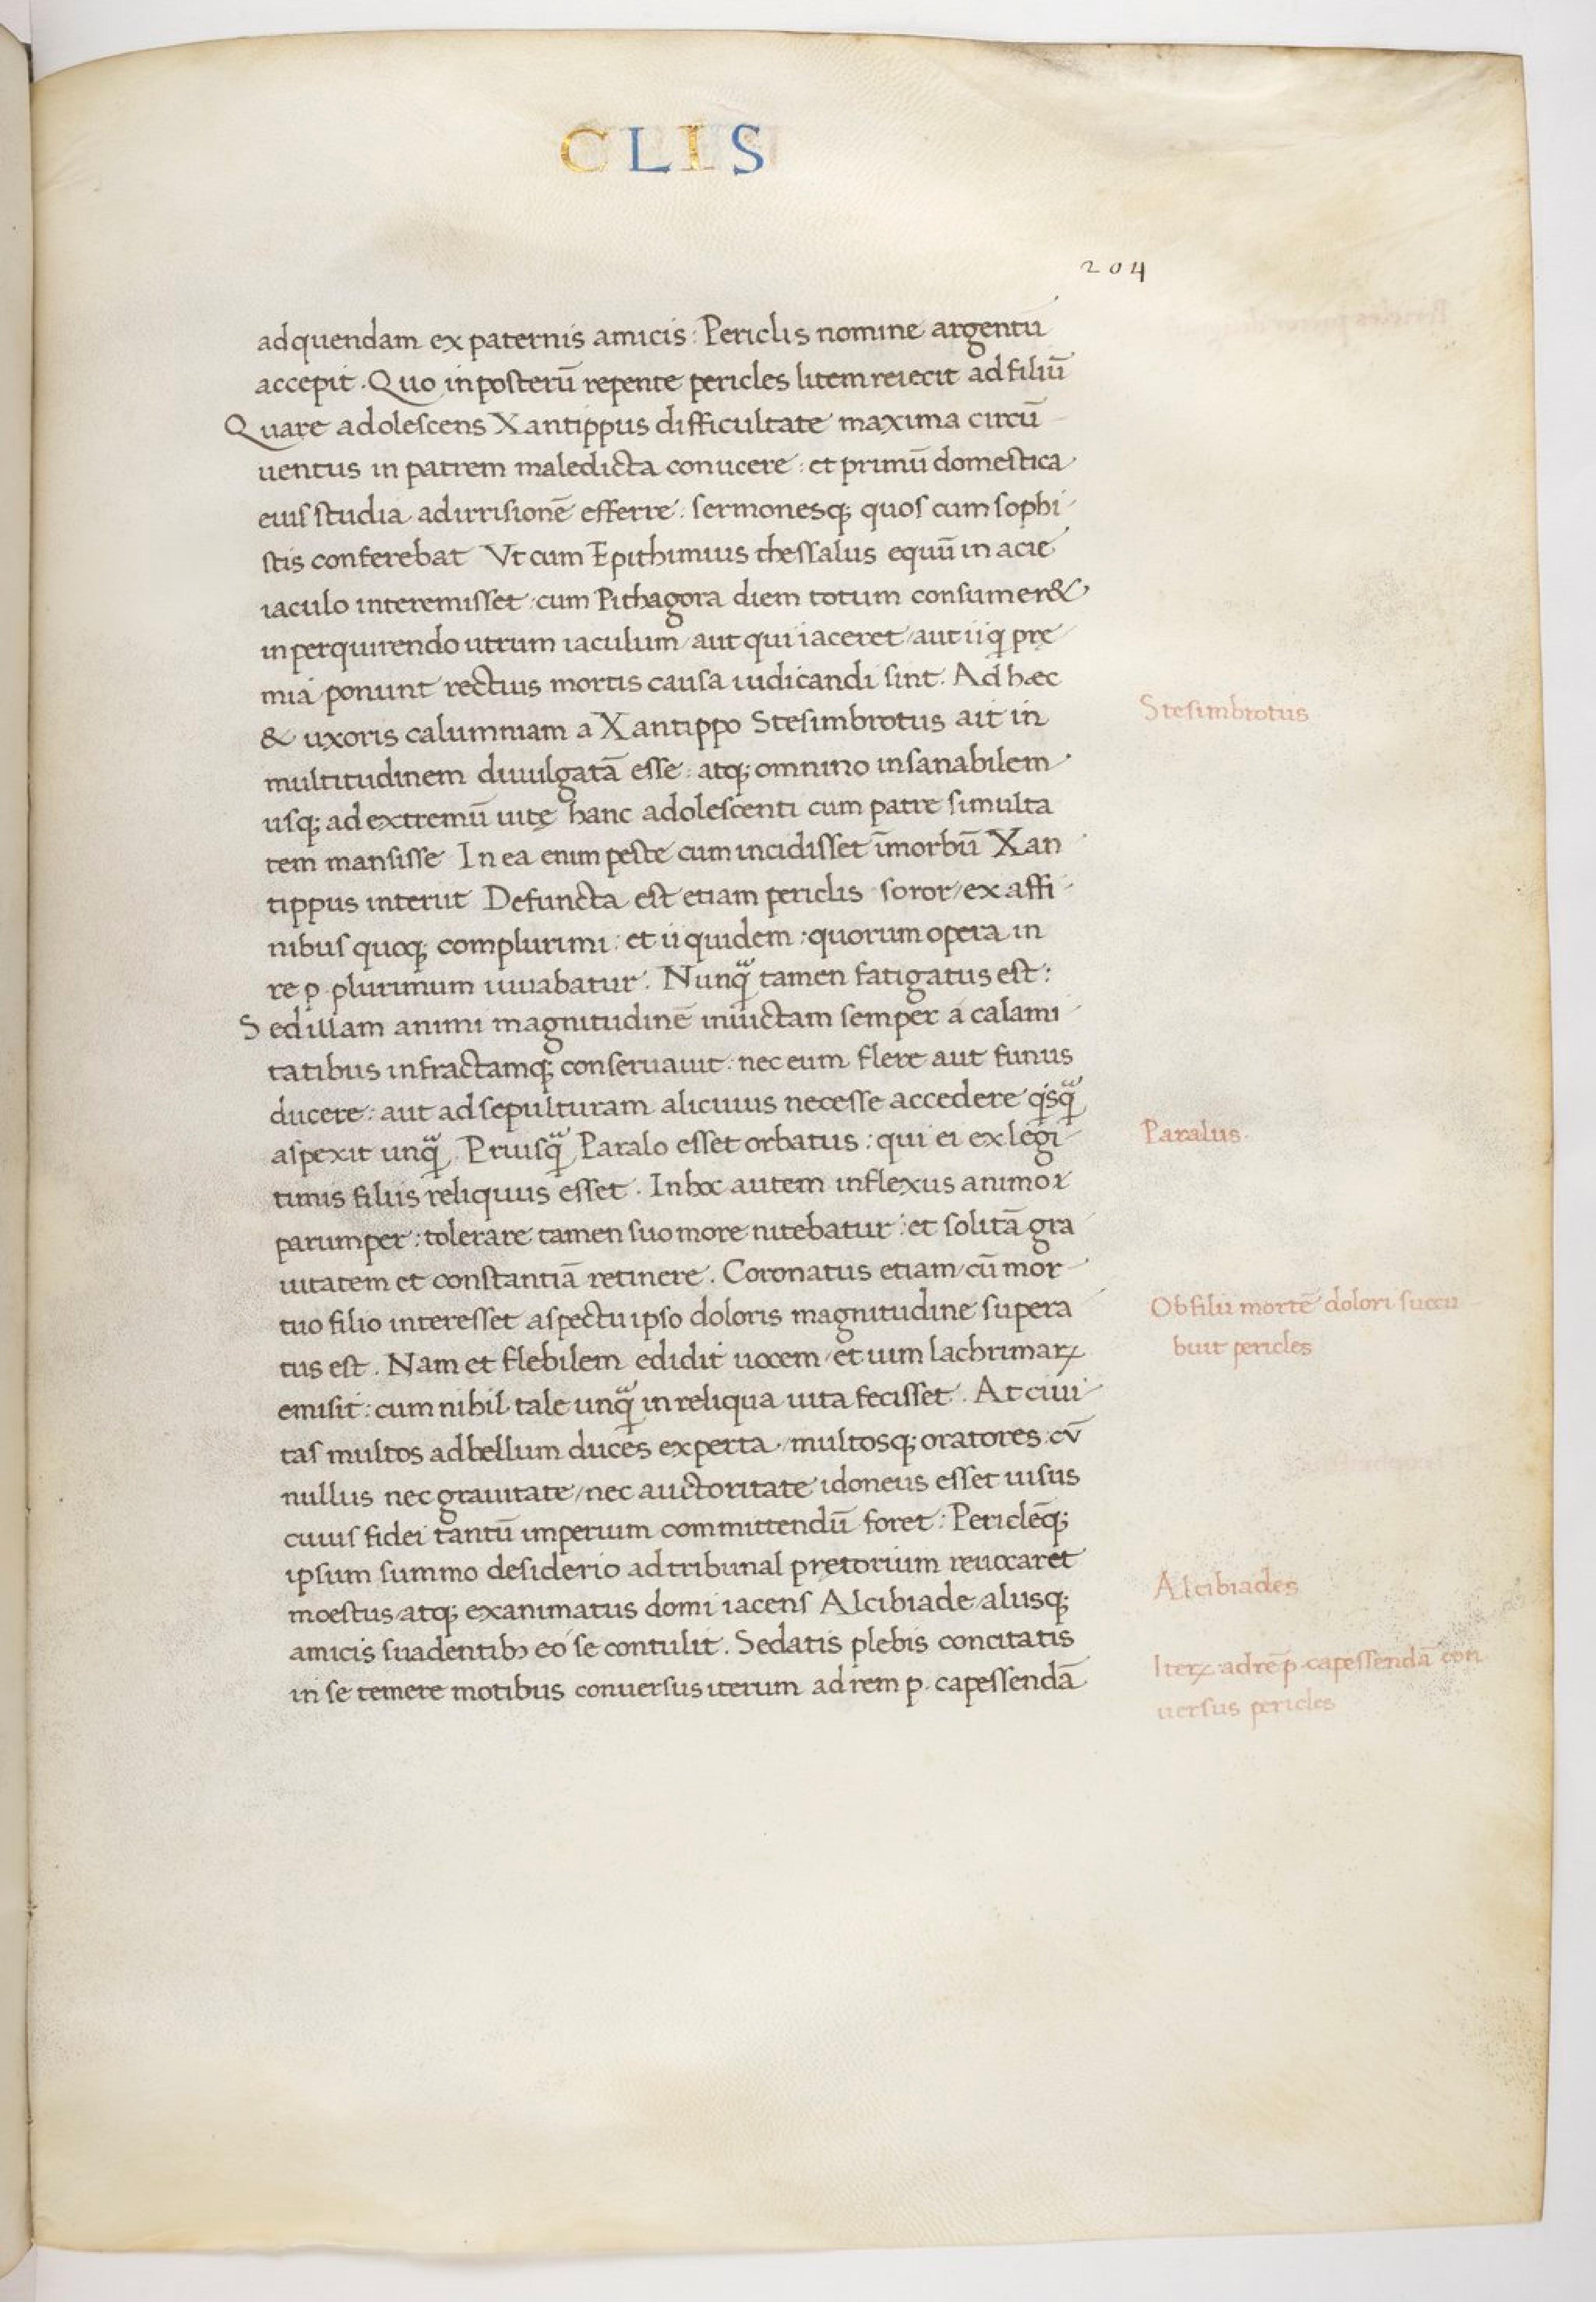 CLIS
204
ad quendam ex paternis amicis: Periclis nomine argentū
accepit. Quo in posterū repente pericles litem reiecit ad filiū
Quare adolescens Xantippus difficultate maxima circū
uentus in patrem maledicta conucere: et primū domestica
eius studia ad irrisionē efferre: sermonesq; quos cum sophi
stis conferebat Vt cum Epithimius thessalus equū in acie
iaculo interemisset: cum Pithagora diem totum consumer&
in perquirendo utrum iaculum/ aut qui iaceret/ aut ii q̢ prę
mia ponunt rectius mortis causa iudicandi sint. Ad hæc
& uxoris calumniam a Xantippo Stesimbrotus ait in
multitudinem diuulgatā esse: atq; omnino insanabilem
usq; ad extremū uitę hanc adolescenti cum patre simulta
tem mansisse In ea enim peste cum incidisset ī morbū Xan
tippus interiit Defuncta est etiam periclis soror/ ex affi
nibus quoq; complurimi: et ii quidem: quorum opera in
re p. plurimum iuuabatur. Nunqᷓ tamen fatigatus est:
Sed illam animi magnitudinē inuictam semper a calami
tatibus infractamq; conseruauit: nec eum flere aut funus
ducere: aut ad sepulturam alicuius necesse accedere qⁱsqᷓ
aspexit unqᷓ. Priusqᷓ Paralo esset orbatus: qui ei ex legi
timis filiis reliquus esset. In hoc autem inflexus animor
parumper: tolerare tamen suo more nitebatur: et solitā gra
uitatem et constantiā retinere. Coronatus etiam/ cū mor
tuo filio interesset aspectu ipso doloris magnitudine supera
tus est. Nam et flebilem edidit uocem/ et uim lachrimaꝝ
emisit: cum nihil tale unqᷓ in reliqua uita fecisset. At ciui
tas multos ad bellum duces experta/ multosq; oratores: cū
nullus nec grauitate/ nec auctoritate idoneus esset uisus
cuius fidei tantū imperium committendū foret: Periclēq;
ipsum summo desiderio ad tribunal pretorium reuocaret
moestus/ atq; exanimatus domi iacens Alcibiade/ aliisq;
amicis suadentibꝫ eo se contulit. Sedatis plebis concitatis
in se temere motibus conuersus iterum ad rem p. capessendā
Stesimbrotus
Paralus.
Ob filii mortē dolori succu
buit pericles
Alcibiades
Iteꝝ ad rē p. capessendā con
uersus pericles